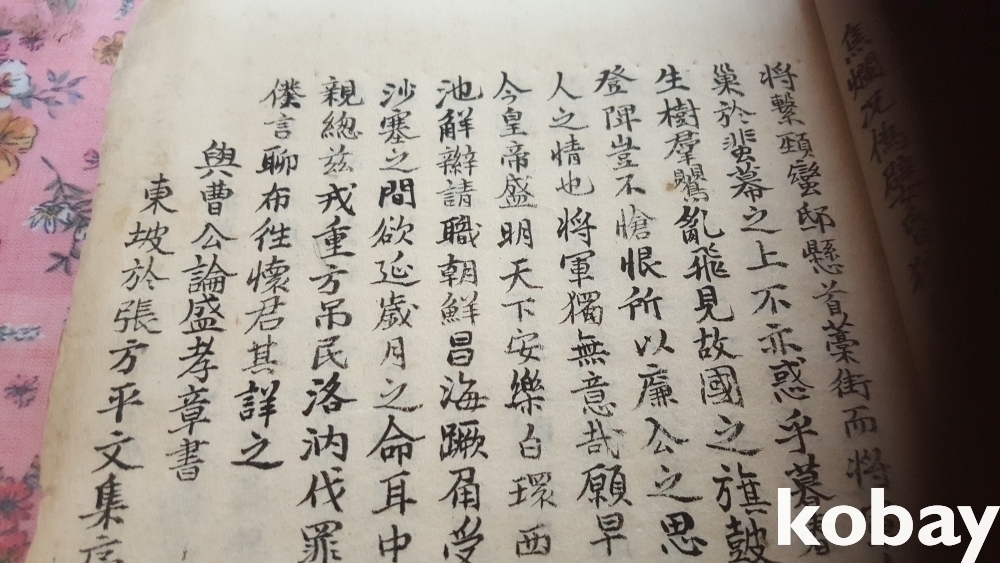 焦爛况
将繫頸蠻邸懸首藁街而將
巢於蜚幕之上不亦惑乎暮
生樹羣鶯亂飛見故國之旗鼓
登陴豈不愴悢所以廉公之思
人之情也将軍獨無意哉願早
今皇帝盛明天下安樂白環西
池解辮請職朝鮮昌海蹶角受
沙塞之間欲延歲月之命耳中
親總茲戎重方吊民洛汭伐罪
僕言聊布徃懷君其詳之
與曹公論盛孝章書
東坡於張方平文集序
kobay